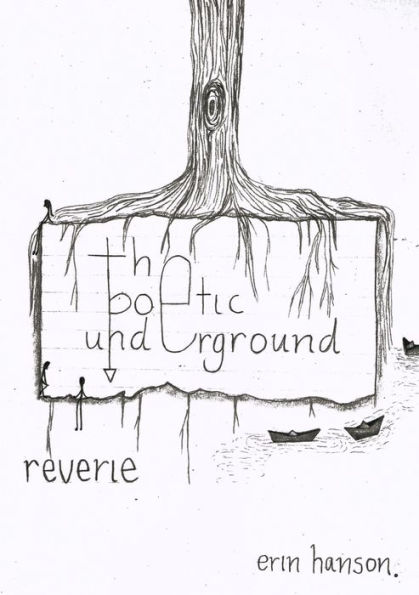 the
poetic
underground
reverie
erin hanson.